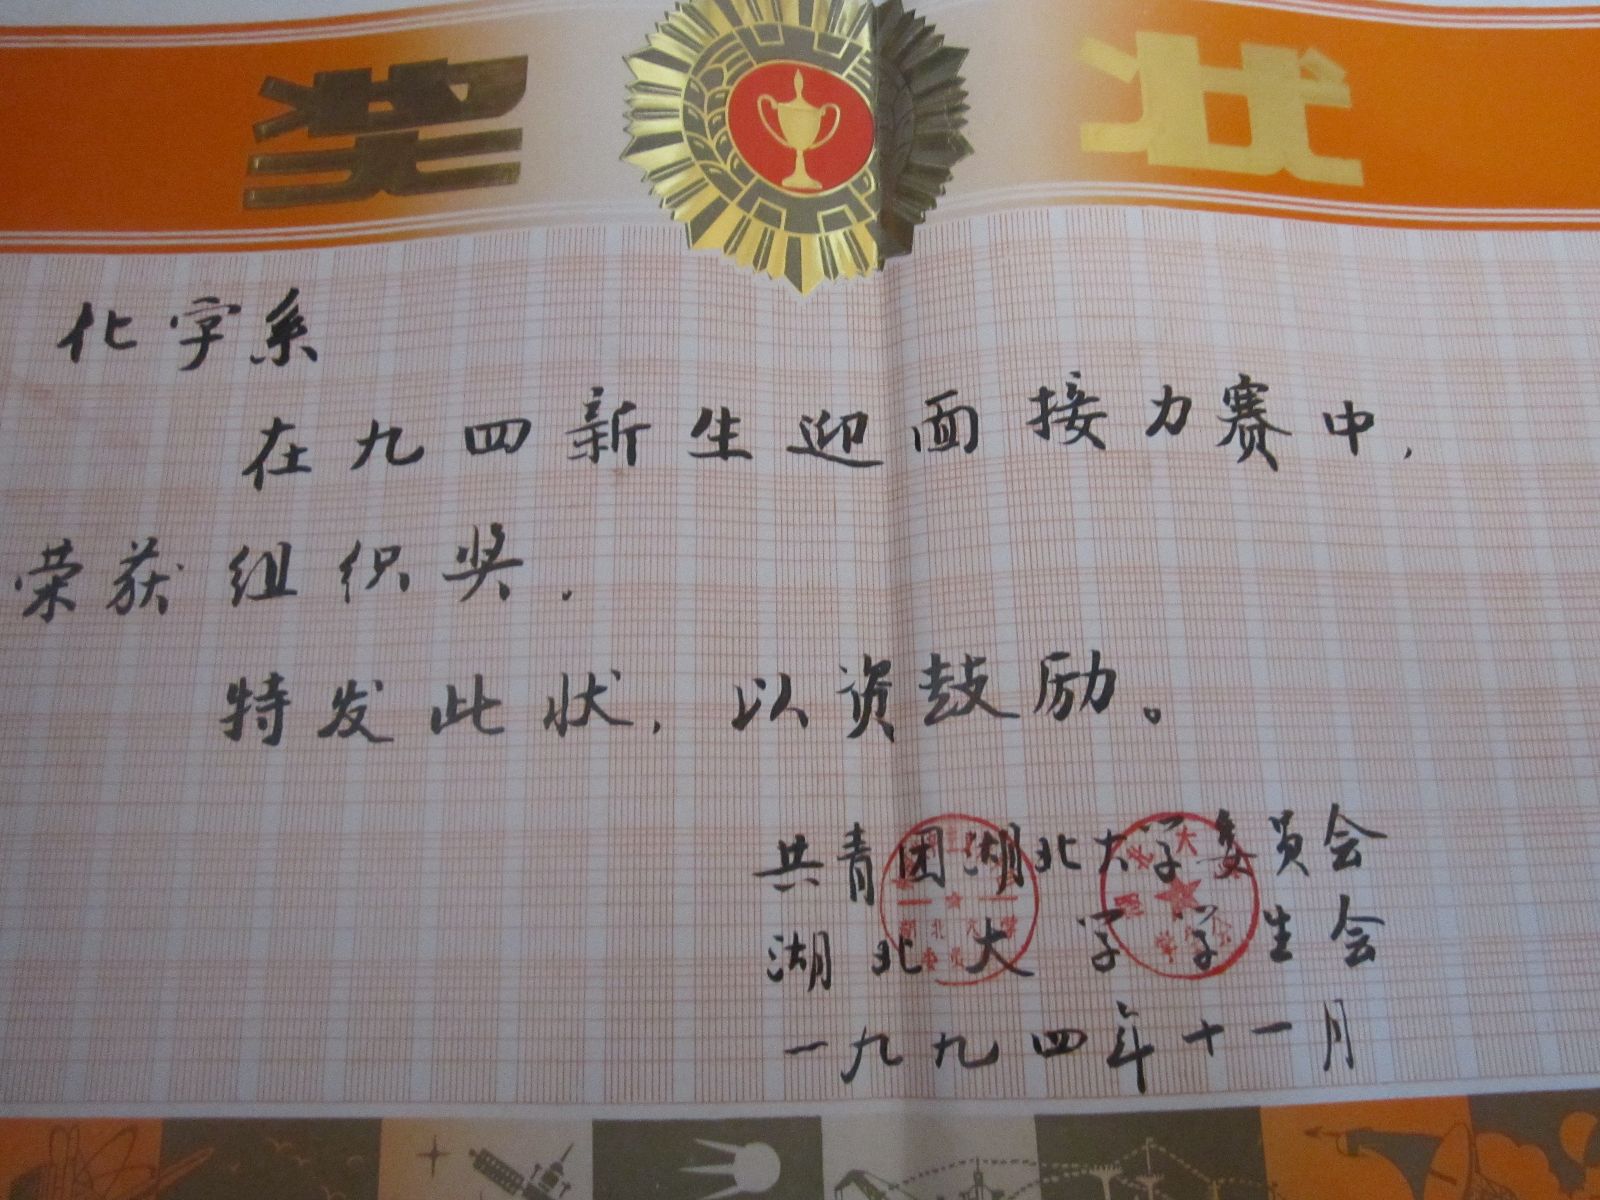 奖状
化学系
在九四新生迎面接力赛中,
荣获组织奖.
特发此状,以资鼓励。
共青团湖北大学委员会
湖北大学学生会
一九九四年十一月